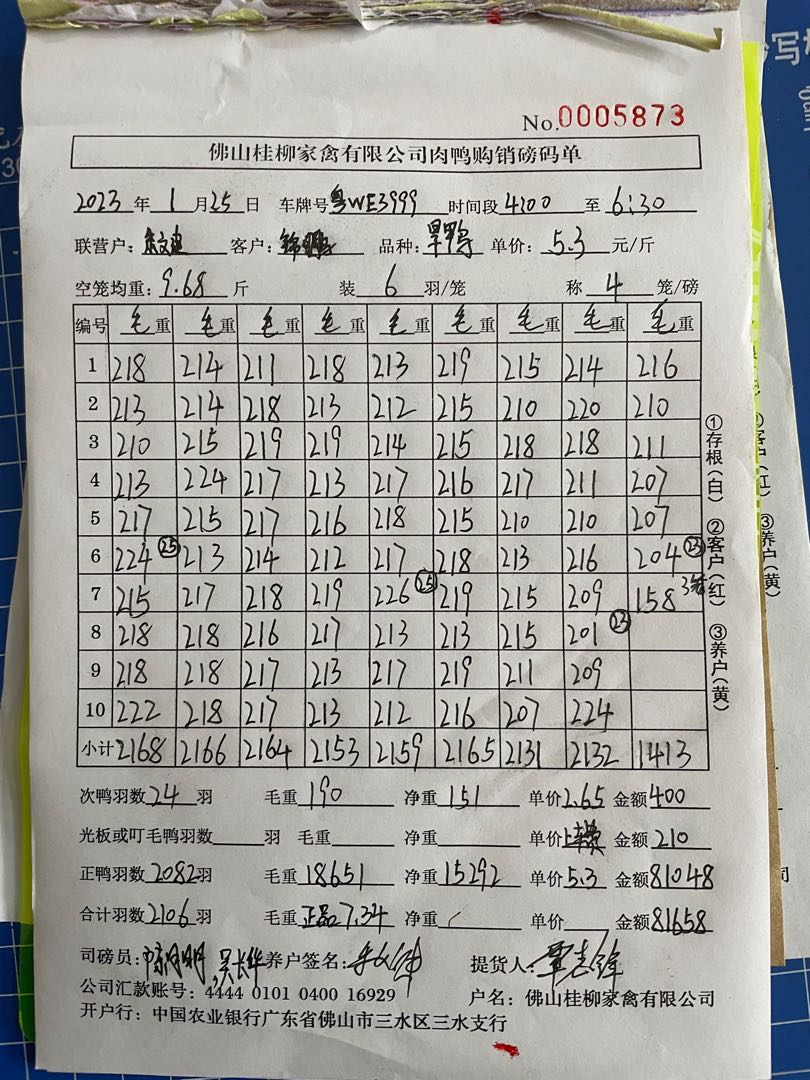 No.0005873
佛山桂柳家禽有限公司肉鸭购销磅码单
2023年1月25日 车牌号粤WE3999 时间段4:00至6:30
联营户: 客户: 品种:旱鸭 单价:5.3元/斤
空笼均重:9.68斤 装6羽/笼 称4笼/磅
编号 毛重 毛重 毛重 毛重 毛重 毛重 毛重 毛重 毛重
1 218 214 211 218 213 219 215 214 216
2 213 214 218 213 212 215 210 220 210
3 210 215 219 219 214 215 218 218 211
4 213 224 217 213 217 216 217 211 207
5 217 215 217 216 218 215 210 210 207
6 224 25 213 214 212 217 218 213 216 204 23
7 215 217 218 219 226 25 219 215 209 158 3笼
8 218 218 216 217 213 213 215 201 23
9 218 218 217 213 217 219 211 209
10 222 218 217 213 212 216 207 224
小计 2168 2166 2164 2153 2159 2165 2131 2132 1413
次鸭羽数24羽 毛重190 净重151 单价2.65 金额400
光板或叮毛鸭羽数 羽 毛重 净重 单价 金额210
正鸭羽数2082羽 毛重18651 净重15292 单价5.3 金额81048
合计羽数2106羽 毛重正品7.34 净重/ 单价 金额81658
司磅员: 养户签名: 提货人:
公司汇款账号:4444 0101 0400 16929 户名:佛山桂柳家禽有限公司
开户行:中国农业银行广东省佛山市三水区三水支行
①存根(白) ②客户(红) ③养户(黄)